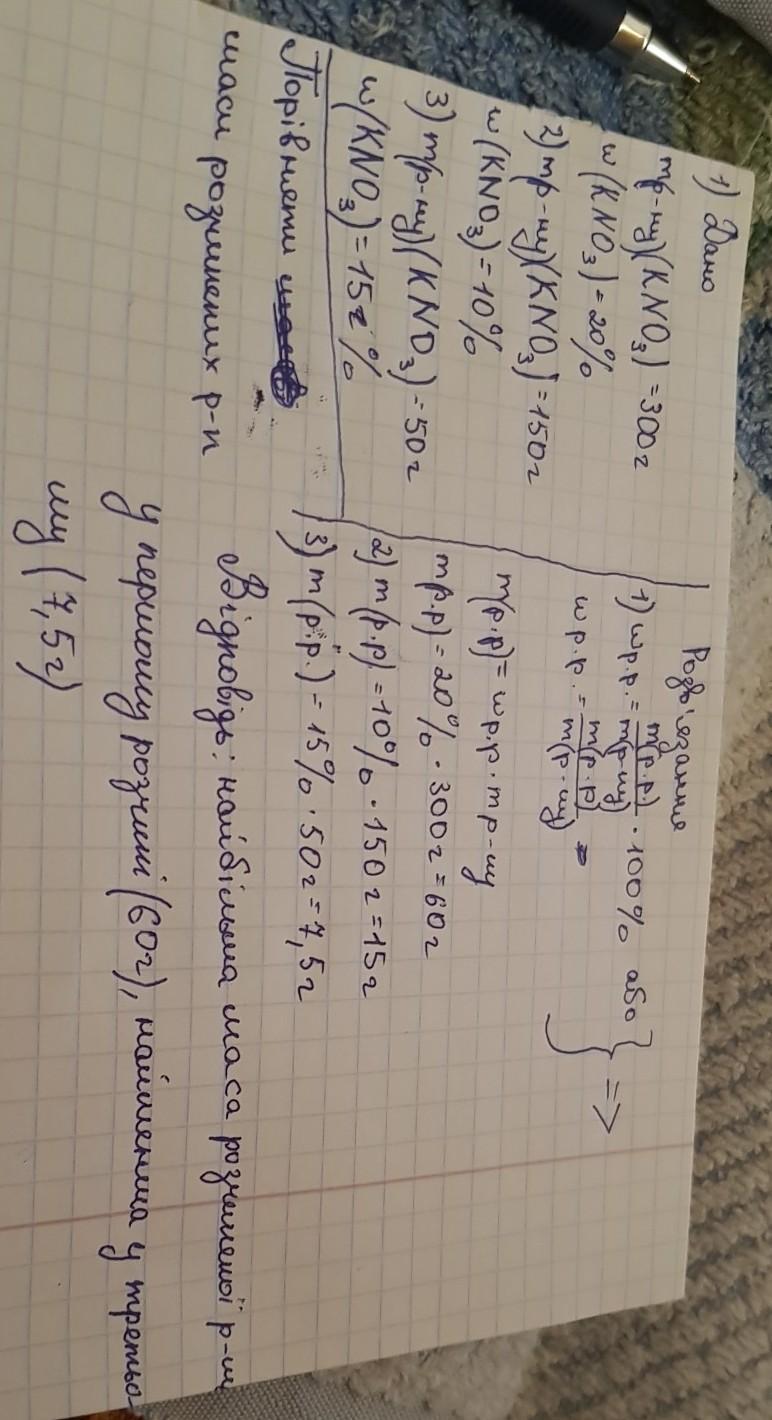 1) Дано
mр-ну)(KNO₃) = 300г
w(KNO₃) = 20%
2) mр-ну)(KNO₃) = 150г
w(KNO₃) = 10%
3) m(р-ну)(KNO₃) - 50г
w(KNO₃) = 15г%
Порівняти
маси розчинених р-н
Розв'язання
1) wр.р. = m(р.р) / m(р-ну) · 100% або
wр.р. = m(р.р) / m(р-ну)
=>
m(р.р) = wр.р · mр-ну
m(р.р) = 20% · 300г = 60г
2) m(р.р) = 10% · 150г = 15г
3) m(р.р.) = 15% · 50г = 7,5г
Відповідь: найбільша маса розчиненої р-ни
у першому розчині (60г), найменша у третьо-
му (7,5г)